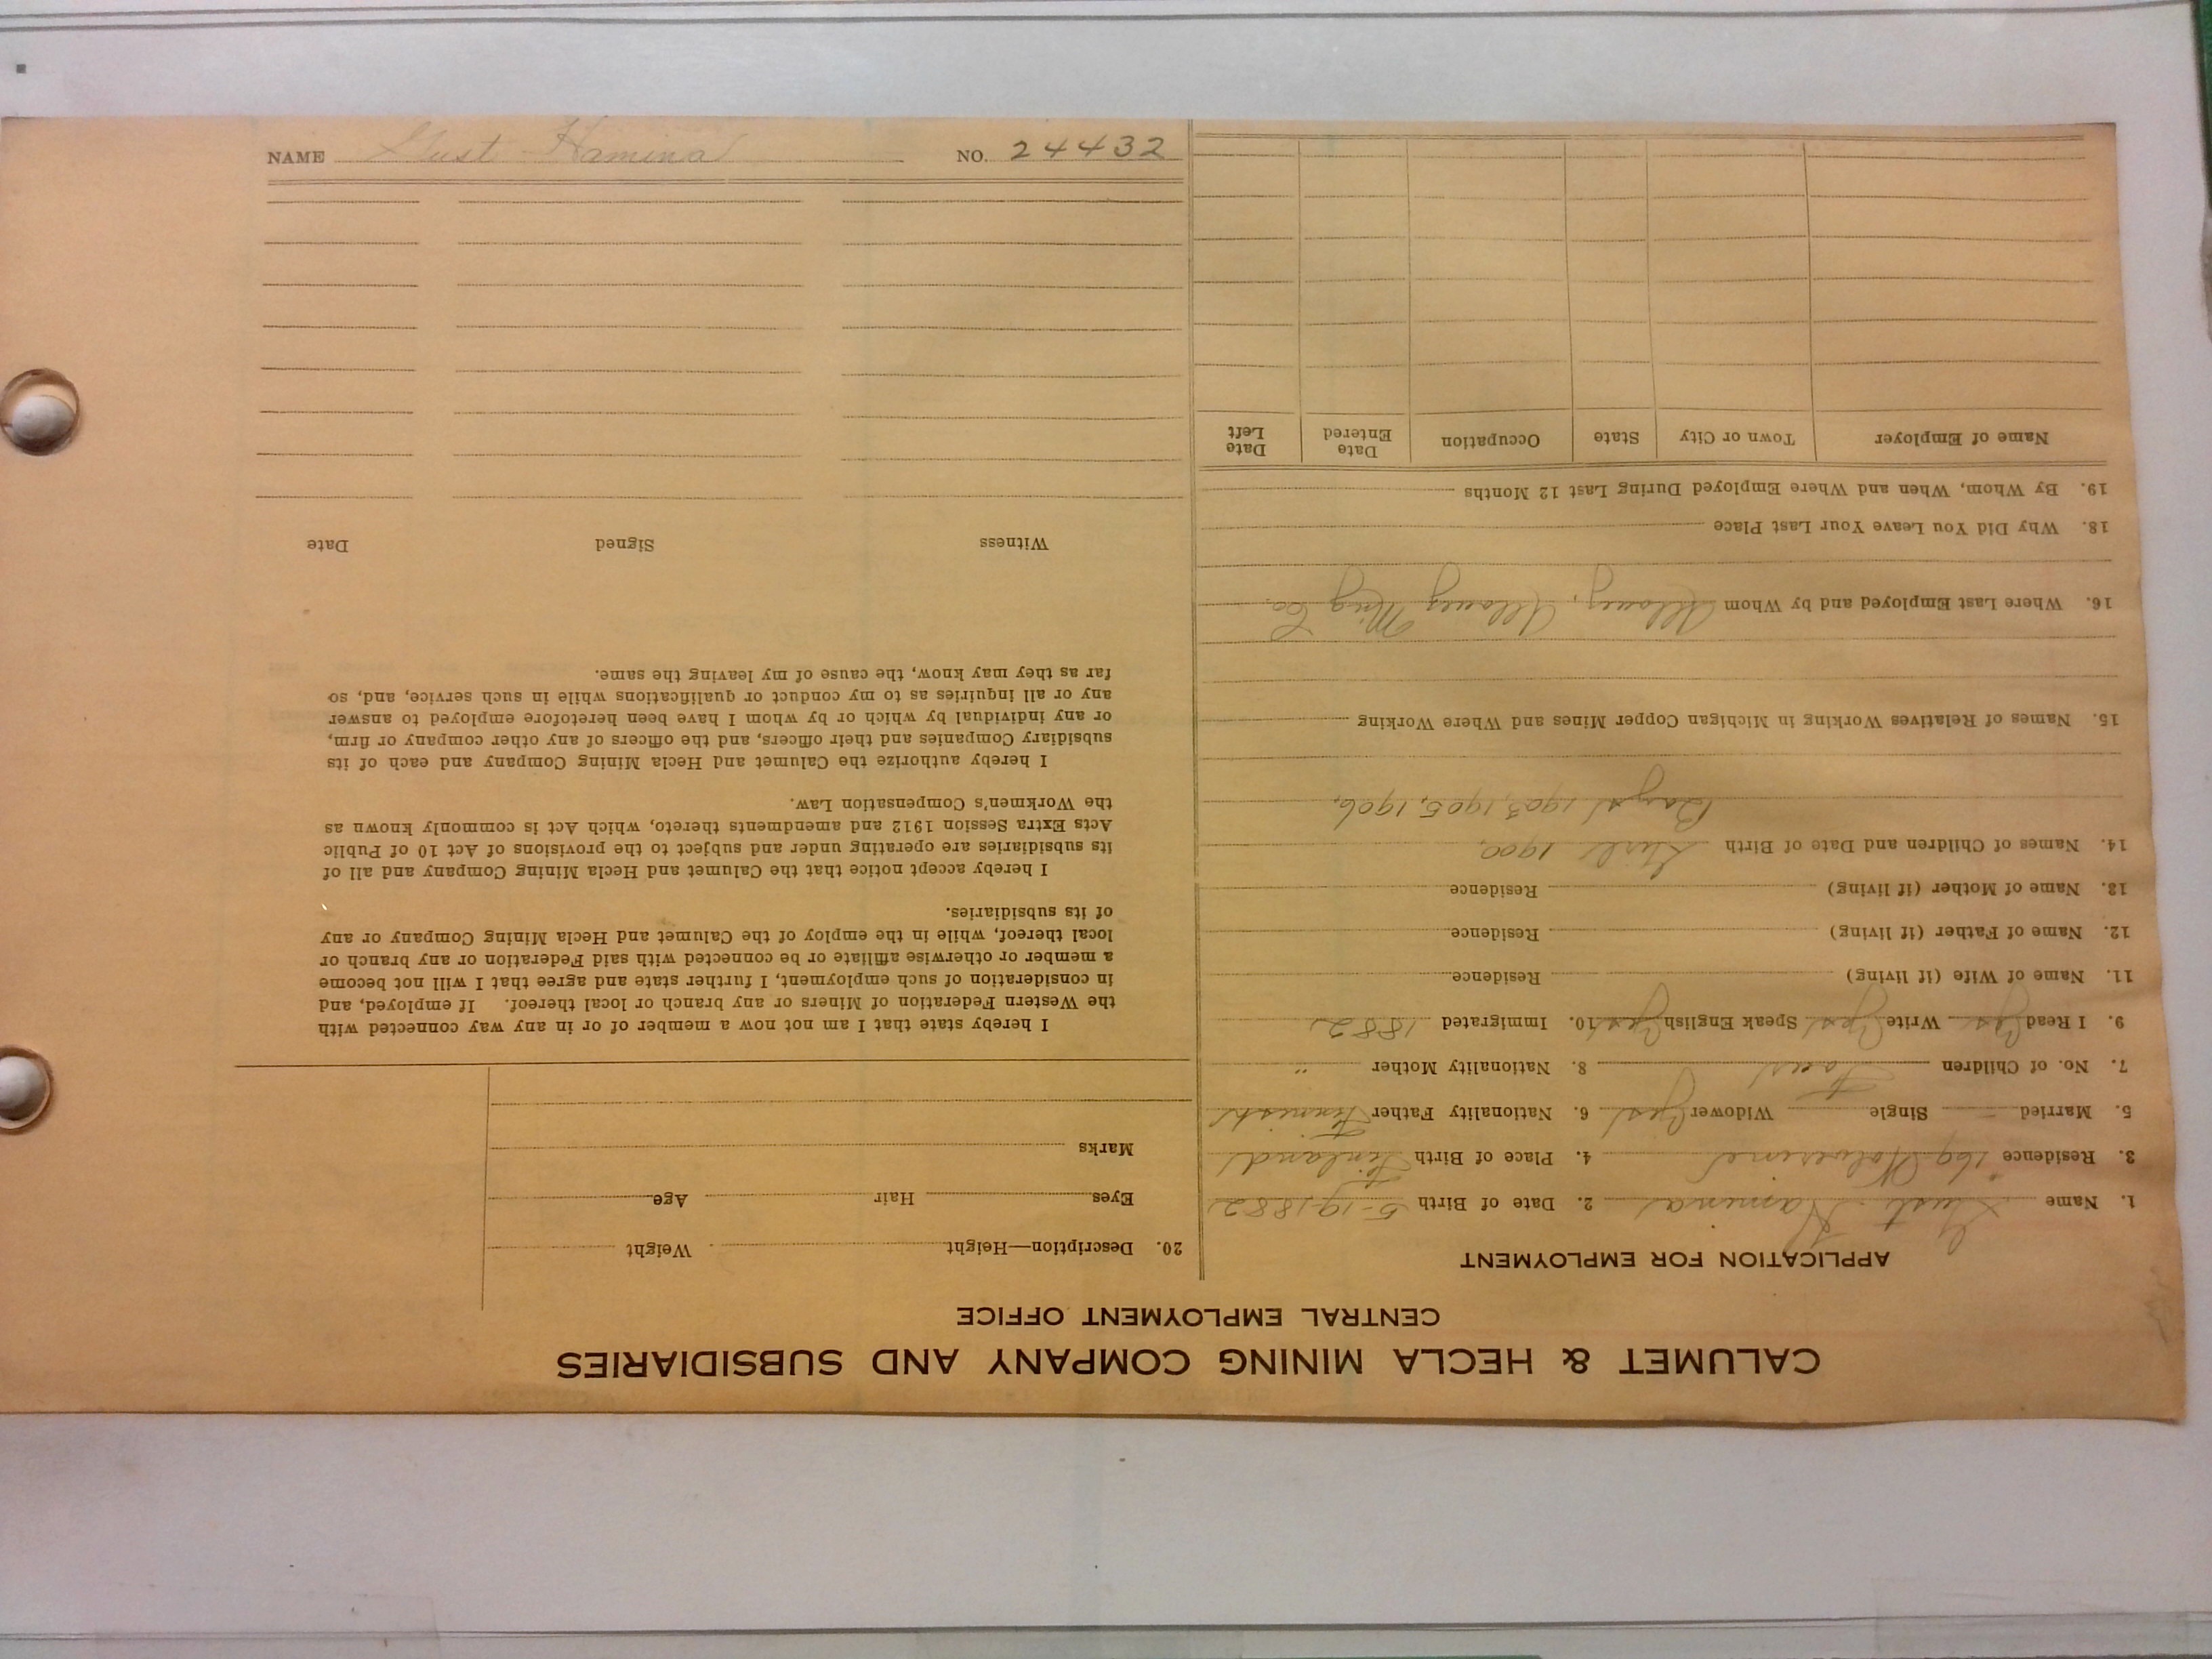 CALUMET & HECLA MINING COMPANY AND SUBSIDIARIES
CENTRAL EMPLOYMENT OFFICE
APPLICATION FOR EMPLOYMENT
1. Name Gust Hamina 2. Date of Birth 5-19-1882
3. Residence #169 Wolverine 4. Place of Birth Finland
5. Married Single Widower Yes 6. Nationality Father Finnish
7. No. of Children Four 8. Nationality Mother "
9. I Read Yes Write Yes Speak English Yes 10. Immigrated 1882
11. Name of Wife (if living) Residence
12. Name of Father (if living) Residence
13. Name of Mother (if living) Residence
14. Names of Children and Date of Birth Girl 1900,
Boys 1903, 1905, 1906,
15. Names of Relatives Working in Michigan Copper Mines and Where Working
16. Where Last Employed and by Whom Allouez, Allouez Mng Co.
18. Why Did You Leave Your Last Place
19. By Whom, When and Where Employed During Last 12 Months
Name of Employer Town or City State Occupation Date Entered Date Left
20. Description—Height Weight
Eyes Hair Age
Marks
I hereby state that I am not now a member of or in any way connected with
the Western Federation of Miners or any branch or local thereof. If employed, and
in consideration of such employment, I further state and agree that I will not become
a member or otherwise affiliate or be connected with said Federation or any branch or
local thereof, while in the employ of the Calumet and Hecla Mining Company or any
of its subsidiaries.
I hereby accept notice that the Calumet and Hecla Mining Company and all of
its subsidiaries are operating under and subject to the provisions of Act 10 of Public
Acts Extra Session 1912 and amendments thereto, which Act is commonly known as
the Workmen's Compensation Law.
I hereby authorize the Calumet and Hecla Mining Company and each of its
subsidiary Companies and their officers, and the officers of any other company or firm,
or any individual by which or by whom I have been heretofore employed to answer
any or all inquiries as to my conduct or qualifications while in such service, and, so
far as they may know, the cause of my leaving the same.
Witness Signed Date
NAME Gust Hamina NO. 24432